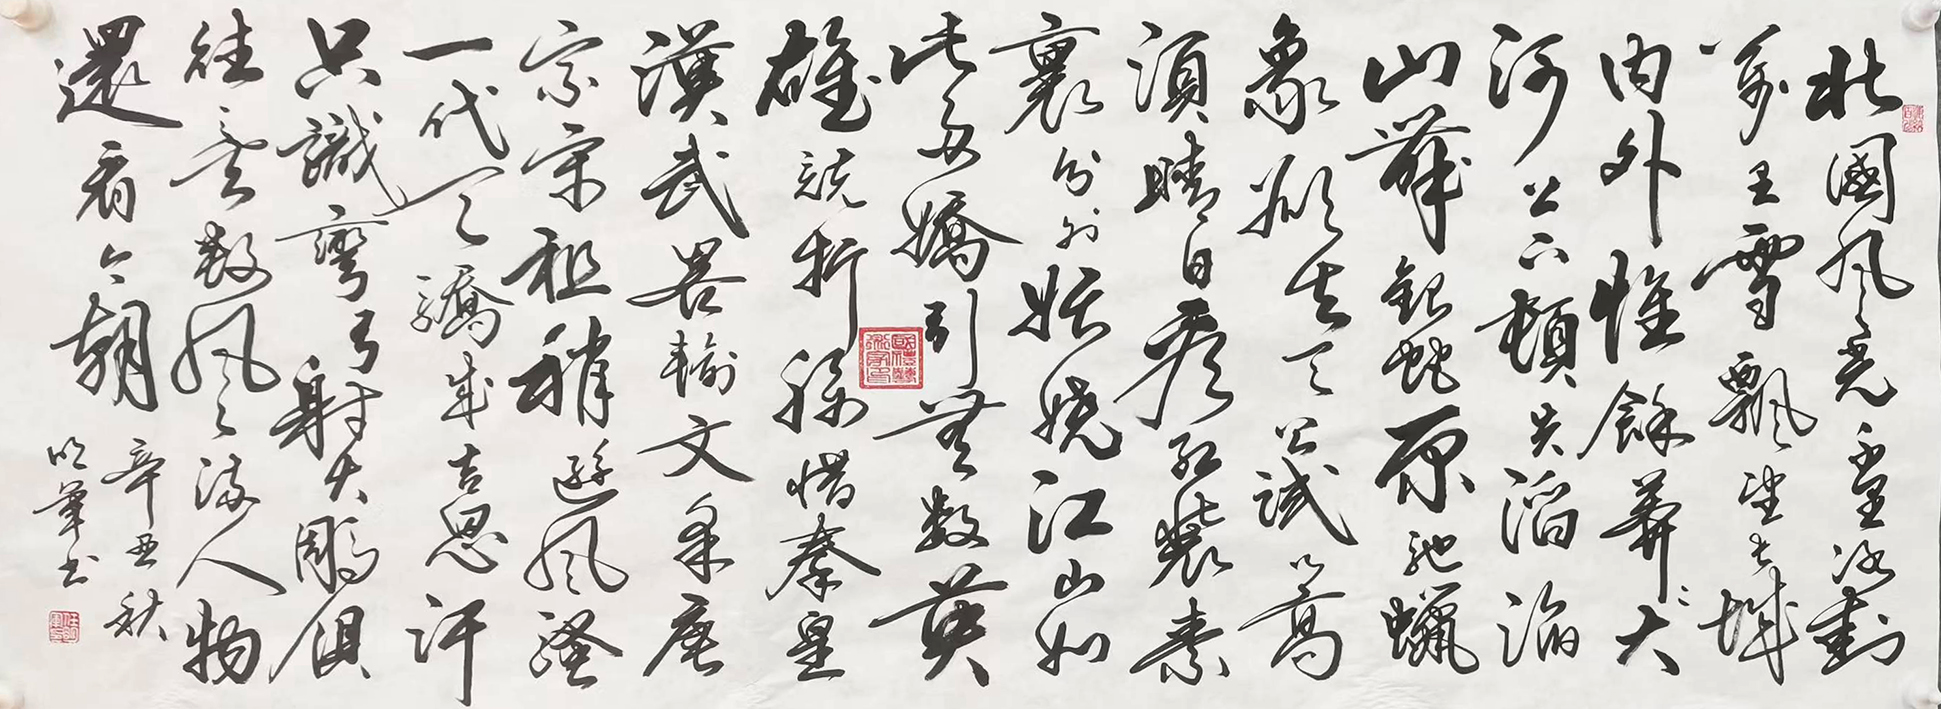 北國風光千里冰封
萬里雪飄望長城
内外惟餘莽莽大
河上下頓失滔滔
山舞銀蛇原馳蠟
象欲與天公試比高
須晴日看紅裝素
裹分外妖嬈江山如
此多嬌引無數英
雄競折腰惜秦皇
漢武畧輸文采唐
宗宋祖稍遜風騷
一代天驕成吉思汗
只識彎弓射大鵰俱
往矣數風流人物
還看今朝
辛丑秋
明軍書